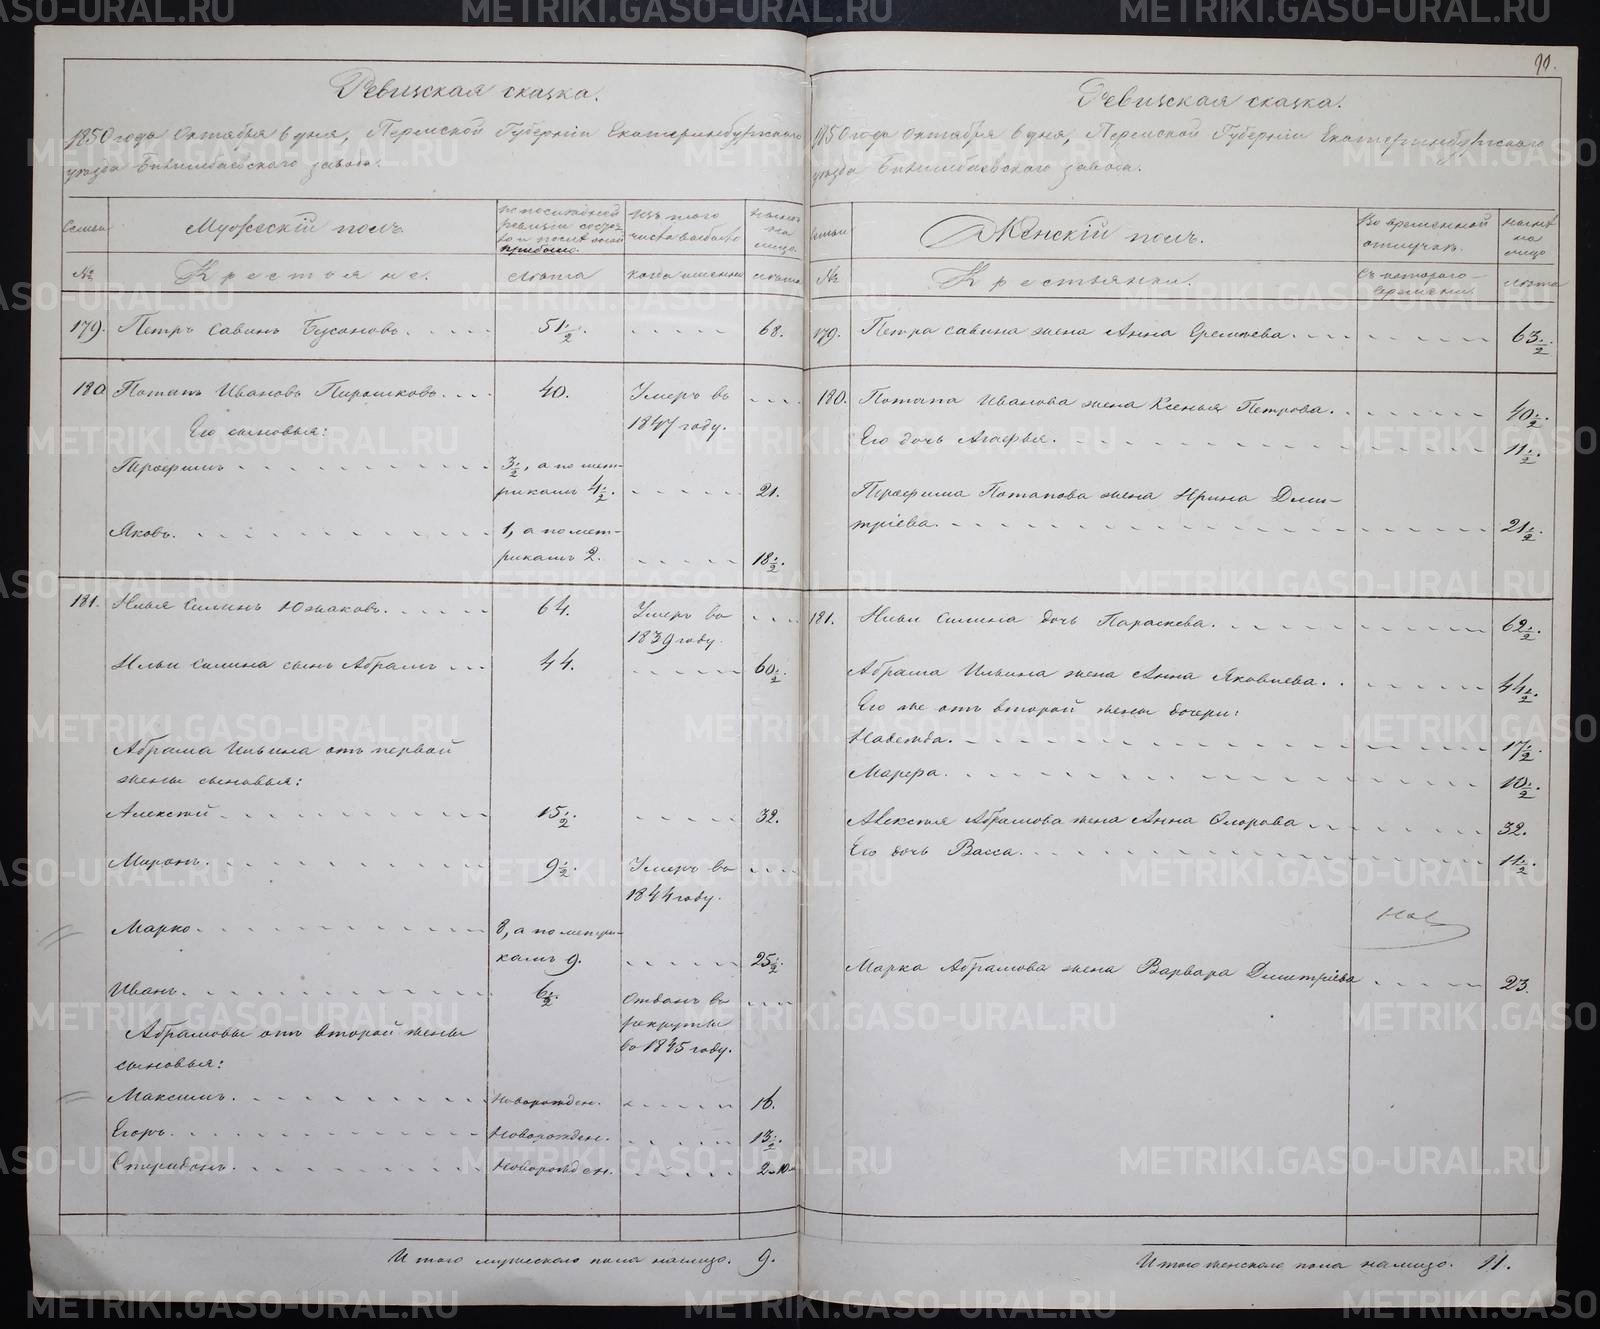 91.
Ревизская сказка.
1850 года Октября 6 дня, Пермской Губернiи Екатеринбургского
уезда Билимбаевского завода.
Семьи
Мужескiй полъ.
По последней ревизiи состояло и после оной прибыло.
Изъ того числа выбыло
Ныне на лицо.
№
Крестьяне.
Лета
когда именно
Лета
179. Петръ Савинъ Бусановъ. 51 1/2. 68.
180. Потапъ Ивановъ Пирожковъ. 40. Умеръ въ
1847 году.
Его сыновья:
Перфилъ 3 1/2, а по мет-
рикамъ 4 1/2. 21.
Яковъ. 1, а по мет-
рикамъ 2. 18 1/2.
181. Илья Силинъ Южаковъ. 64. Умеръ въ
1839 году.
Ильи Силина сынъ Абрамъ 44. 60 1/2.
Абрама Ильина отъ первой
жены сыновья:
Алексей 15 1/2. 32.
Миронъ. 9 1/2. Умеръ въ
1844 году.
Марко. 8, а по метри-
камъ 9. 25 1/2.
Иванъ. 6 1/2. Отданъ въ
рекруты
въ 1845 году.
Абрамовы отъ второй жены
сыновья:
Максимъ. Новорожден. 16.
Егоръ. Новорожден. 13 1/2.
Спиридонъ. Новорожден.
Итого мужеского пола налицо. 9.
Ревизская сказка.
1850 года Октября 6 дня, Пермской Губернiи Екатеринбургского
уезда Билимбаевского завода.
Семьи
Женскiй полъ.
Во временной отлучке.
Ныне на лицо
№
Крестьянки.
Съ которого времени.
Лета
179. Петра Савина жена Анна Еремеева. 63 1/2.
180. Потапа Иванова жена Ксенья Петрова. 40 1/2.
Его дочь Агафья. 11 1/2.
Перфила Потапова жена Ирина Дми-
трiева. 21 1/2.
181. Ильи Силина дочь Параскева. 62 1/2.
Абрама Ильина жена Анна Яковлева. 44 1/2.
Его же отъ второй жены дочери:
Надежда. 17 1/2.
Марфа. 10 1/2.
Алексея Абрамова жена Анна Федорова 32.
Его дочь Васса. 11 1/2.
Марка Абрамова жена Варвара Дмитрiева 23.
Итого женского пола налицо. 11.
METRIKI.GASO-URAL.RU